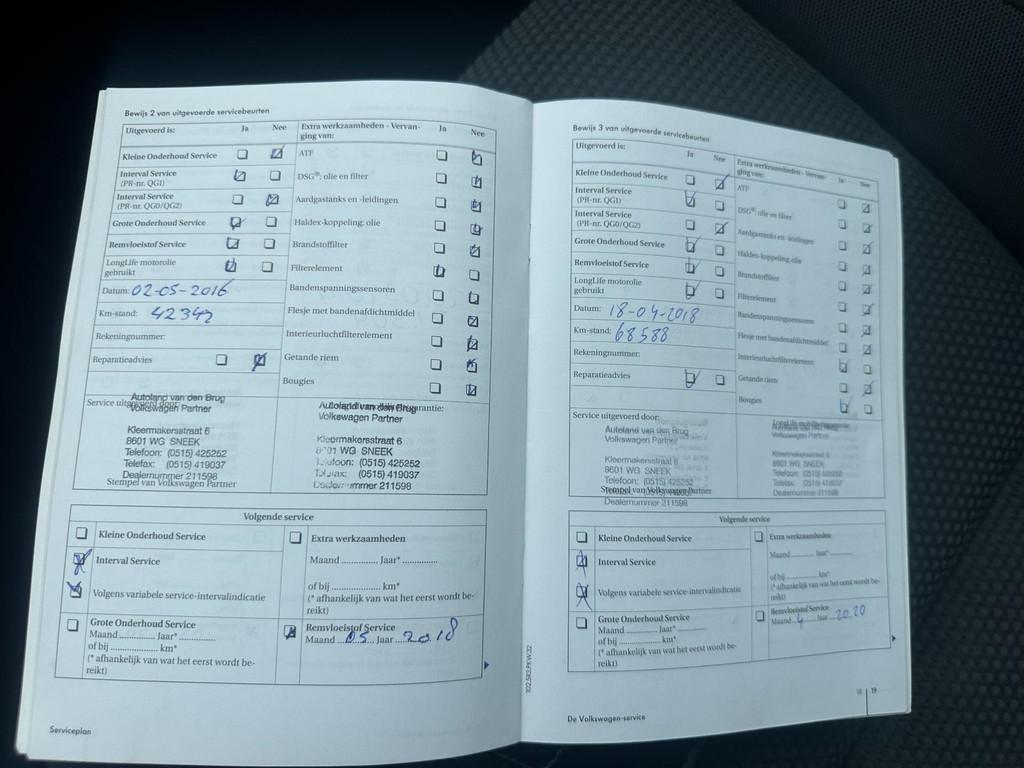 Bewijs 2 van uitgevoerde servicebeurten
Uitgevoerd is: Ja Nee
Kleine Onderhoud Service
Interval Service
(PR-nr. QG1)
Interval Service
(PR-nr. QG0/QG2)
Grote Onderhoud Service
Remvloeistof Service
LongLife motorolie
gebruikt
Datum: 02-05-2016
Km-stand: 42342
Rekeningnummer:
Reparatieadvies
Extra werkzaamheden - Vervan- Ja Nee
ging van:
ATF
DSG®: olie en filter
Aardgastanks en -leidingen
Haldex-koppeling: olie
Brandstoffilter
Filterelement
Bandenspanningssensoren
Flesje met bandenafdichtmiddel
Interieurluchtfilterelement
Getande riem
Bougies
Service uitgevoerd door:
Autoland van den Brug
Volkswagen Partner
Kleermakersstraat 6
8601 WG SNEEK
Telefoon: (0515) 425252
Telefax: (0515) 419037
Dealernummer 211598
Stempel van Volkswagen Partner
Autoland van den Brug
Volkswagen Partner
Kleermakersstraat 6
8601 WG SNEEK
Telefoon: (0515) 425252
Telefax: (0515) 419037
Dealernummer 211598
Volgende service
Kleine Onderhoud Service
Interval Service
Volgens variabele service-intervalindicatie
Grote Onderhoud Service
Maand ............ Jaar* ............
of bij ................ km*
(* afhankelijk van wat het eerst wordt be-
reikt)
Extra werkzaamheden
Maand ............ Jaar* ............
of bij ................ km*
(* afhankelijk van wat het eerst wordt be-
reikt)
Remvloeistof Service
Maand 05 Jaar 2018
Serviceplan
102.5R3.PKW.32
Bewijs 3 van uitgevoerde servicebeurten
Uitgevoerd is: Ja Nee
Kleine Onderhoud Service
Interval Service
(PR-nr. QG1)
Interval Service
(PR-nr. QG0/QG2)
Grote Onderhoud Service
Remvloeistof Service
LongLife motorolie
gebruikt
Datum: 18-04-2018
Km-stand: 68588
Rekeningnummer:
Reparatieadvies
Extra werkzaamheden - Vervan- Ja Nee
ging van:
ATF
DSG®: olie en filter
Aardgastanks en -leidingen
Haldex-koppeling: olie
Brandstoffilter
Filterelement
Bandenspanningssensoren
Flesje met bandenafdichtmiddel
Interieurluchtfilterelement
Getande riem
Bougies
Service uitgevoerd door:
Autoland van den Brug
Volkswagen Partner
Kleermakersstraat 6
8601 WG SNEEK
Telefoon: (0515) 425252
Stempel van Volkswagen Partner
Dealernummer 211598
Autoland van den Brug
Volkswagen Partner
Kleermakersstraat 6
8601 WG SNEEK
Telefoon: (0515) 425252
Telefax: (0515) 419037
Dealernummer 211598
Volgende service
Kleine Onderhoud Service
Interval Service
Volgens variabele service-intervalindicatie
Grote Onderhoud Service
Maand ............ Jaar* ............
of bij ................ km*
(* afhankelijk van wat het eerst wordt be-
reikt)
Extra werkzaamheden
Maand ............ Jaar* ............
of bij ................ km*
(* afhankelijk van wat het eerst wordt be-
reikt)
Remvloeistof Service
Maand 4 Jaar 2020
De Volkswagen-service
18 | 19